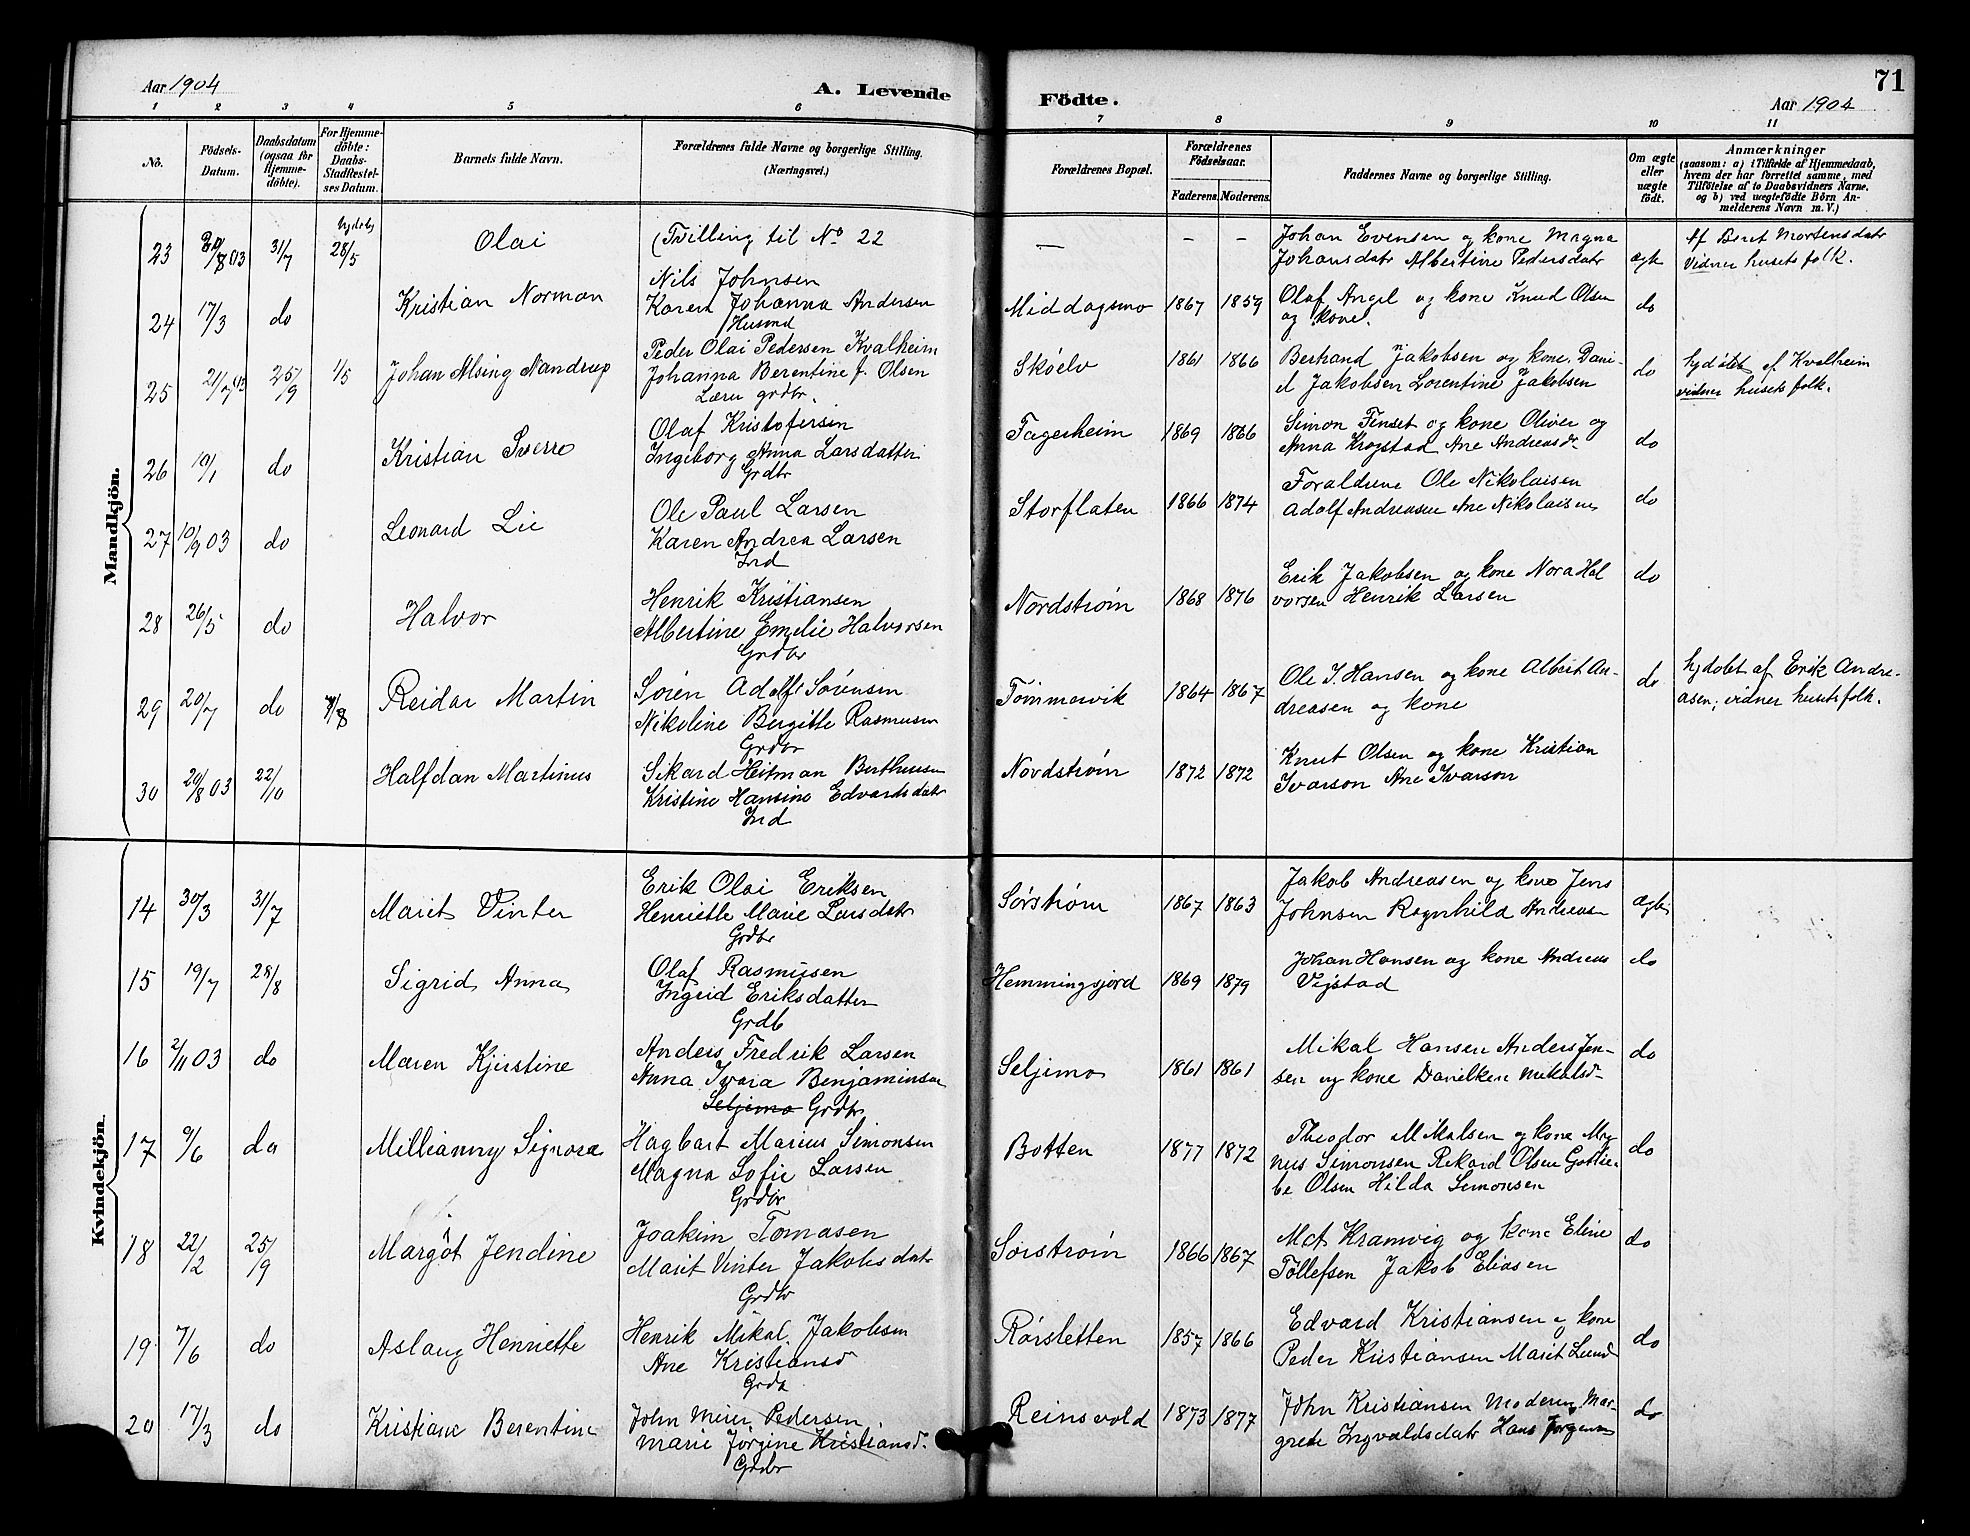 71
Aar 1904
A. Levende Födte.
Aar 1904
1 2 3 4 5 6 7 8 9 10 11
No.
Födsels-
Datum.
Daabsdatum
(ogsaa for
Hjemme-
döbte).
For Hjemme-
döbte:
Daabs-
Stadfæstel-
ses Datum.
Barnets fulde Navn.
Forældrenes fulde Navne og borgerlige Stilling.
(Næringsvei.)
Forældrenes Bopæl.
Forældrenes
Födselsaar.
Faderens. Moderens.
Faddernes Navne og borgerlige Stilling.
Om ægte
eller
uægte
födt.
Anmærkninger
(saasom: a) i Tilfælde af Hjemmedaab,
hvem der har forrettet samme, med
Tilföielse af to Daabsvidners Navne.
og b) ved uægtefödte Börn An-
melderens Navn m. V.)
Mandkjön.
23 31/7 28/5 Olai (Tvilling til No 22 — – –
Johan Evensen og kone Magna
Johansdatr Albertine Pedersdatr
ægte
Af Beret Mortensdatr
Vidner husets folk.
24 17/3 do Kristian Norman
Nils Johnsen
Karen Johanna Andersen
Husmd
Middagsmo 1867 1859
Olaf Angel og kone Knud Olsen
og kone.
do
25 21/7 03 25/9 1/5 Johan Alsing Nandrup
Peder Olai Pedersen Kvalheim
Johanna Berentine f. Olsen
Lærer grdbr.
Sköelv 1861 1866
Bertrand Jakobsen og kone Dani-
el Jakobsen Lorentine Jakobsen
do
hjdöbt af Kvalheim
vidner husets folk.
26 10/1 do Kristian Sverre
Olaf Kristofersen
Ingeborg Anna Larsdatter
Grdbr
Fagerheim 1869 1866
Simon Finset og kone Oliver og
Anna Krogstad Ane Andreasdr
do
27 10/9 03 do Leonard Lie
Ole Paul Larsen
Karen Andrea Larsen
Ind
Storflaten 1866 1874
Forældrene Ole Nikolaisen
Adolf Andreasen Ane Nikolaisens
do
28 26/5 do Halvor
Henrik Kristiansen
Albertine Emelie Halvorsen
Grdbr
Nordströin 1868 1876
Erik Jakobsen og kone Nora Hal
vorsen Henrik Larsen
do
29 20/7 do 7/8 Reidar Martin
Sören Adolf Sörensen
Nikoline Bergitte Rasmusen
Grdbr
Tömmervik 1864 1867
Ole J. Hansen og kone Albert An-
dreasen og kone
do
hjdöbt af Erik Andre-
asen; vidner husets folk.
30 20/8 03 22/10 Halfdan Martinus
Sikard Heitman Berthusen
Kristine Hansine Edvardsdatr
Ind
Nordströin 1872 1872
Knut Olsen og kone Kristian
Ivarson Ane Ivarson
Kvindekjön.
14 30/3 31/7 Marit Vinter
Erik Olai Eriksen
Henriette Marie Larsdatr
Grdbr
Sörströin 1867 1863
Jakob Andreasen og kone Jens
Johnsen Ragnhild Andreasen
ægte
15 19/7 28/8 Sigrid Anna
Olaf Rasmusen
Ingrid Eriksdatter
Grdb
Hemmingsjord 1869 1879
Johan Hansen og kone Andreas
Vejstad
do
16 2/11 03 do Maren Kjirstine
Anders Fredrik Larsen
Anna Ivara Benjaminsen
Seljemo Grdbr
Seljemo 1861 1861
Mikal Hansen Anders Jen-
sen og kone Danielken Mikalsd-
do
17 9/6 do Millianny Signora
Hagbart Marius Simonsen
Magna Sofie Larsen
Grdbr
Botten 1877 1872
Theodor Mikalsen og kone Mag
nus Simonsen Rikard Olsen Gottlie-
be Olsen Hilda Simonsen
do
18 22/2 25/9 Margot Jendine
Joakim Tomasen
Marit Vinter Jakobsdatr
Grdbr
Sörströin 1866 1867
Mat Kramvig og kone Eline
Tollefsen Jakob Eliasen
do
19 7/6 do Aslaug Henriette
Henrik Mikal Jakobsen
Ane Kristiansd
Grdb
Rörsletten 1857 1866
Edvard Kristiansen og kone
Peder Kristiansen Marit Lund
do
20 17/3 do Kristiane Berentine
John Meier Pedersen
Marie Jörgine Kristiansd.
Grdbr
Reinsvold 1873 1877
John Kristiansen Moderen Mar-
grete Ingvaldsdatr Hans Jörgensen
do